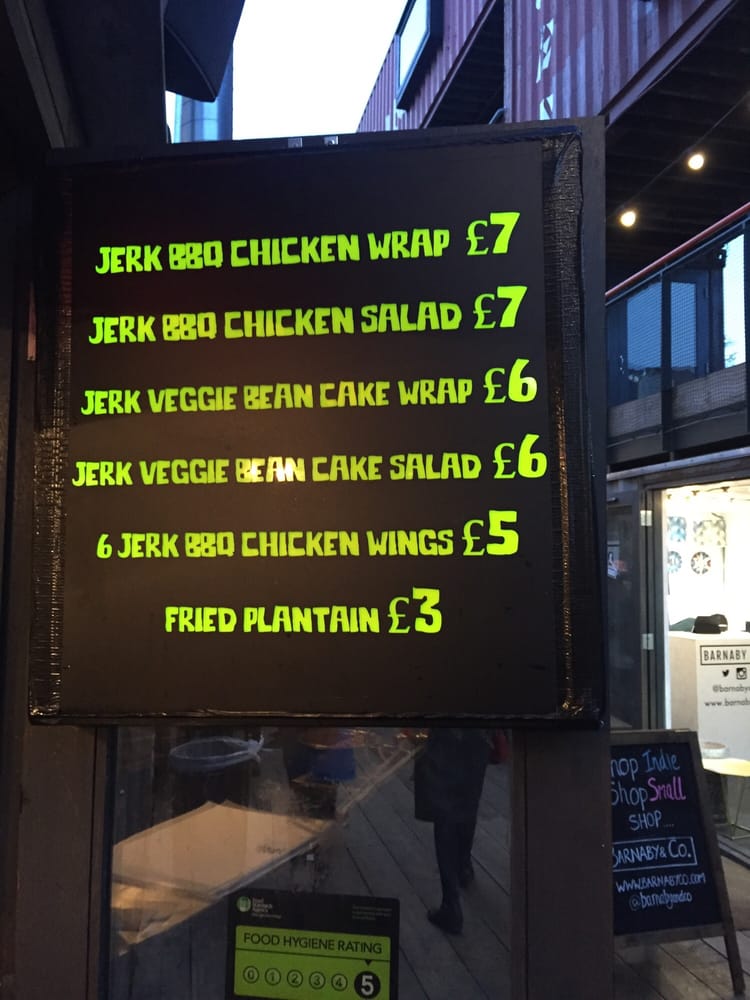 JERK BBQ CHICKEN WRAP £7
JERK BBQ CHICKEN SALAD £7
JERK VEGGIE BEAN CAKE WRAP £6
JERK VEGGIE BEAN CAKE SALAD £6
6 JERK BBQ CHICKEN WINGS £5
FRIED PLANTAIN £3
BARNABY
@barnaby
www.barnab
hop Indie
Shop Small
SHOP....
BARNABY & Co.
WWW.BARNABYCO.COM
@barnabyandco
Food
Standards
Agency
FOOD HYGIENE RATING
0 1 2 3 4 5